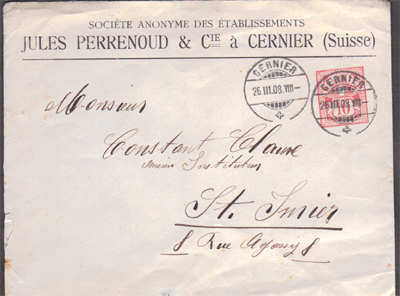 SOCIÉTÉ ANONYME DES ÉTABLISSEMENTS
JULES PERRENOUD & CIE à CERNIER (Suisse)
CERNIER
26.III.08.VIII–
CERNIER
26.III.08.VIII–
10
Monsieur
Constant
Ancien Instituteur
St. Imier
Rue